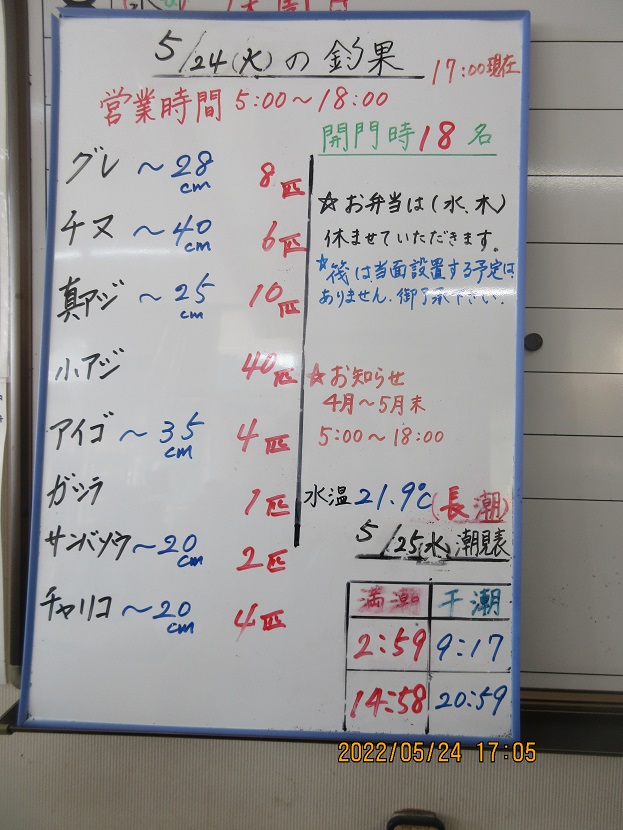 5/24(火)の釣果
17:00現在
営業時間 5:00～18:00
開門時18名
グレ ～28cm 8匹
チヌ ～40cm 6匹
真アジ ～25cm 10匹
小アジ 40匹
アイゴ ～35cm 4匹
ガシラ 1匹
サンバソウ ～20cm 2匹
チャリコ ～20cm 4匹
☆お弁当は(水、木)
休ませていただきます。
☆筏は当面設置する予定は
ありません。御了承下さい。
☆お知らせ
4月～5月末
5:00～18:00
水温21.9℃(長潮)
5/25(水)潮見表
満潮 干潮
2:59 9:17
14:58 20:59
2022/05/24 17:05